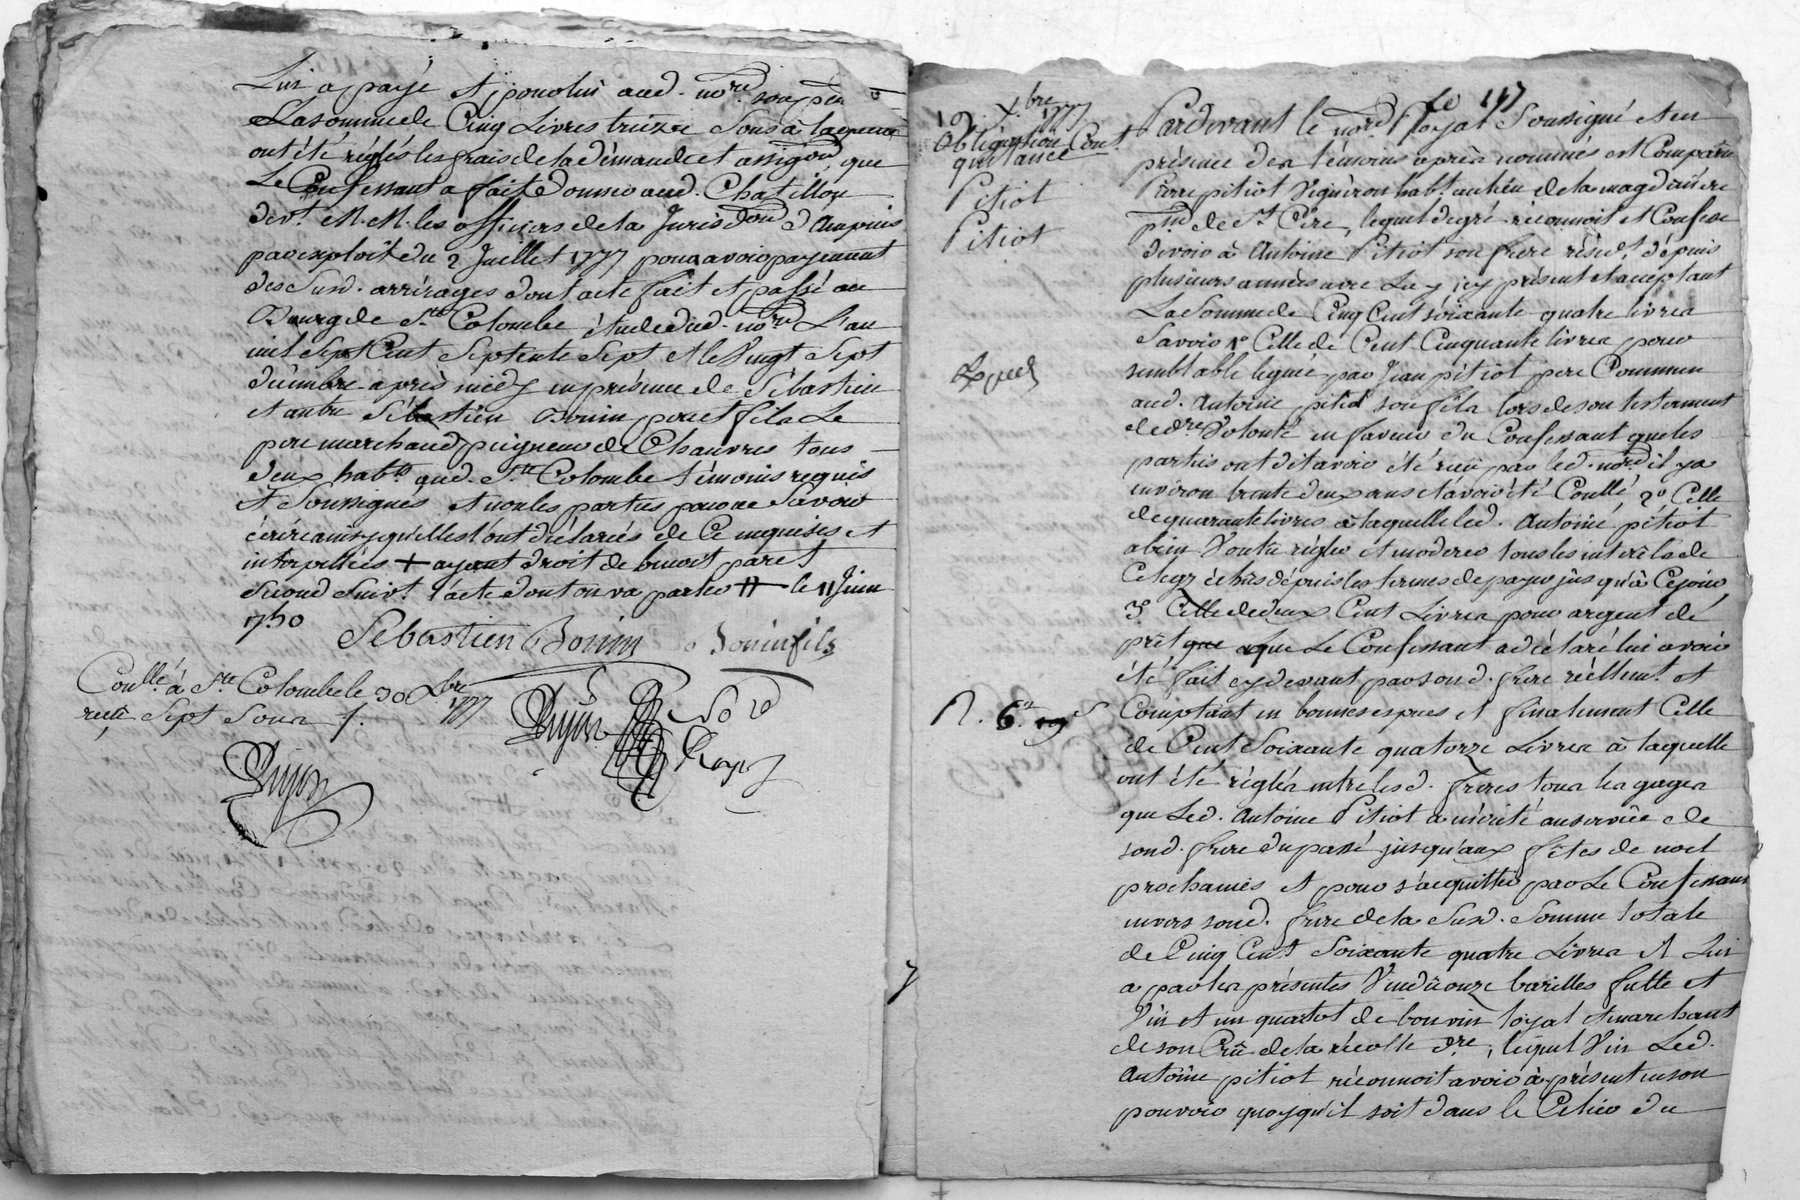 Lui a payé et pour lui aud. no.re
La somme de Cinq Livres treize Sous à laquelle
ont été réglés les frais de la demande et assig.on que
Le Confessant a fait donner aud. Chatillon
dev.t M.M. les officiers de la Jurisd.on d'Ampuis
par exploit du 2 Juillet 1777 pour avoir payement
des Susd. arrérages dont acte fait et passé au
Bourg de S.te Colombe étude dud. no.re L'an
mil Sept Cent Septente Sept et le Vingt Sept
décembre après midy en présence de Sébastien
et autre Sébastien Bonin pere et fils Le
pere marchand peigneur de Chanvres tous
deux hab.ts aud. S.te Colombe témoins requis
et Soussignés et non les parties pour ne Savoir
écrire ainsy qu'elles l'ont déclarées de Ce enquises et
interpellées + ayant droit de benoit paret
Second Suiv.t l'acte dont on va parler # le 11 Juin
1750
Sébastien Bonin Bonin fils
Con.llé à S.te Colombe le 30 Xbre 1777
reçu Sept Sous f.
Dujon
Dujon
f.o 147
19 Xbre 1777
Obligation Cont.
quitance
Pitiot
Pitiot
Exped
Pardevant le no.re Royal Soussigné et en
présence des témoins après nommés est Comparu
Pierre pitiot Vigneron hab.t au lieu de la magdelaine
de S.t Cire, lequel de gré reconnoit et Confesse
devoir à Antoine Pitiot son frere résid.t dépuis
plusieurs années avec Luy icy présent et acceptant
La Somme de Cinq Cent soixante quatre livres
Savoir 1.o Celle de Cent Cinquante livres pour
semblable léguée par Jean pitiot pere Commun
aud. Antoine pitiot son fils lors de son testement
de d.re Volonté en faveur du Confessant que les
parties ont dit avoir été reçu par led. no.re il y a
environ trente deux ans et avoir été Con.llé 2.o Celle
de quarante livres à laquelle led. Antoine pitiot
a bien Voulu régler et moderer tous les intérêts de
Ce legz échus dépuis les termes de payer jusqu'à Ce jour,
3.o Celle de deux Cent Livres pour argent de
prêt que Le Confessant a déclaré lui avoir
été fait cy devant par sond. frere réellem.t et
Comptant en bonnes especes et finalement Celle
de Cent Soixante quatorze Livres à laquelle
ont été réglés entre lesd. freres tous les gages
que Led. Antoine Pitiot a mérité au service de
sond. frere du passé jusqu'aux fêtes de noel
prochaines et pour s'acquitter par Le Confessant
envers sond. frere de la Susd. Somme totale
de Cinq Cent Soixante quatre Livres il Lui
a par les présentes Vendu onze barilles futte et
Vin et un quartot de bon vin loyal et marchant
de son Crû de la récolte d.re, lequel Vin Led.
Antoine pitiot réconnoit avoir à présent en son
pouvoir quoyqu'il soit dans le Celier du